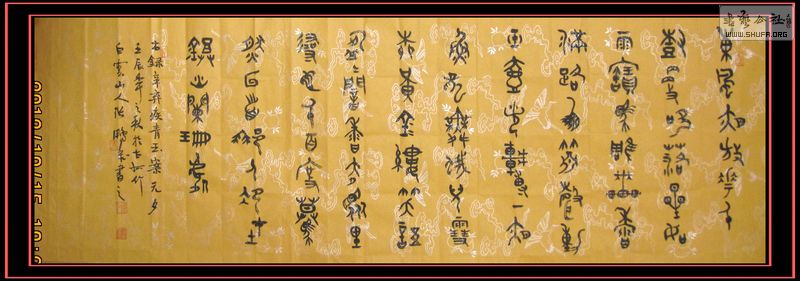 東風夜放花千
樹更吹落星如
雨寶馬雕車香
滿路鳳簫聲動
玉壺光轉一夜
魚龍舞蛾兒雪
柳黃金縷笑語
盈盈暗香去眾里
尋他千百度驀
然回首那人卻在
燈火闌珊處
右錄辛棄疾青玉案元夕
壬辰年之秋於古
白雲山人張書之
WWW.SHUFA.ORG